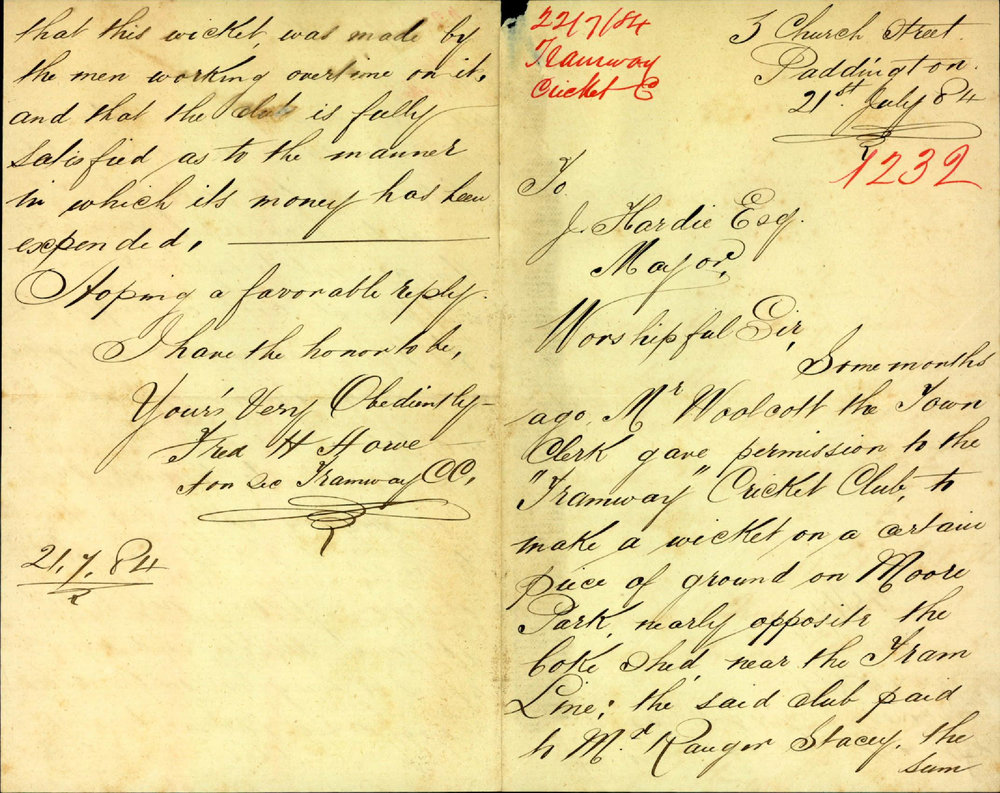 22/7/84
Tramway
Cricket C
3 Church Street.
Paddington.
21st July 84
1232
To
J. Hardie Esq.
Mayor,
Worshipful Sir,
Some months
ago, Mr Woolcott the Town
Clerk gave permission to the
"Tramway" Cricket Club, to
make a wicket on a certain
piece of ground on Moore
Park, nearly opposite the
Coke Shed, near the Tram
Line; the said club paid
to Mr Ranger Stacey, the
sum
that this wicket, was made by
the men working overtime on it,
and that the club is fully
satisfied as to the manner
in which it's money has been
expended,
Hoping a favorable reply.
I have the honor to be,
Your's Very Obediently
Fred H Howe
Hon Sec Tramway CC,
21.7.84